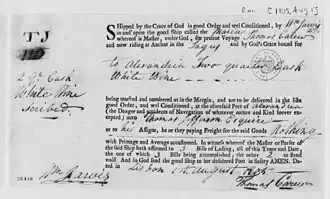 TJ
2 Qr Cask
White Wine
SHipped by the Grace of God in good Order and wel Conditioned, by Wm Jarvis
in and upon the good Ship called the Maria
whereof is Master, under God, for the present Voyage Thomas
and now riding at Anchor in the Tagus and by God's Grace bound for
to Alexandria Two quarter Cask
White Wine
being marked and numbered as in the Margin, and are to be delivered in the like
good Order, and wel Conditioned, at the aforesaid Port of Alexandria
(the Danger and Accidents of Navigation of whatever Nature and Kind forever ex-
cepted) unto Thomas Jefferson Esquire
or to his Assigns, he or they paying Freight for the said Goods Nothing
with Primage and Average accustomed. In witness whereof the Master or Purser of
the said Ship hath affirmed to 3 Bills of Lading, all of this Tenor and Date,
the one of which 3 Bills being accomplished, the other 2 to stand
void. And so God send the good Ship to her desired Port in Safety AMEN. Dated
in Lisbon August
Wm Jarvis
Thomas